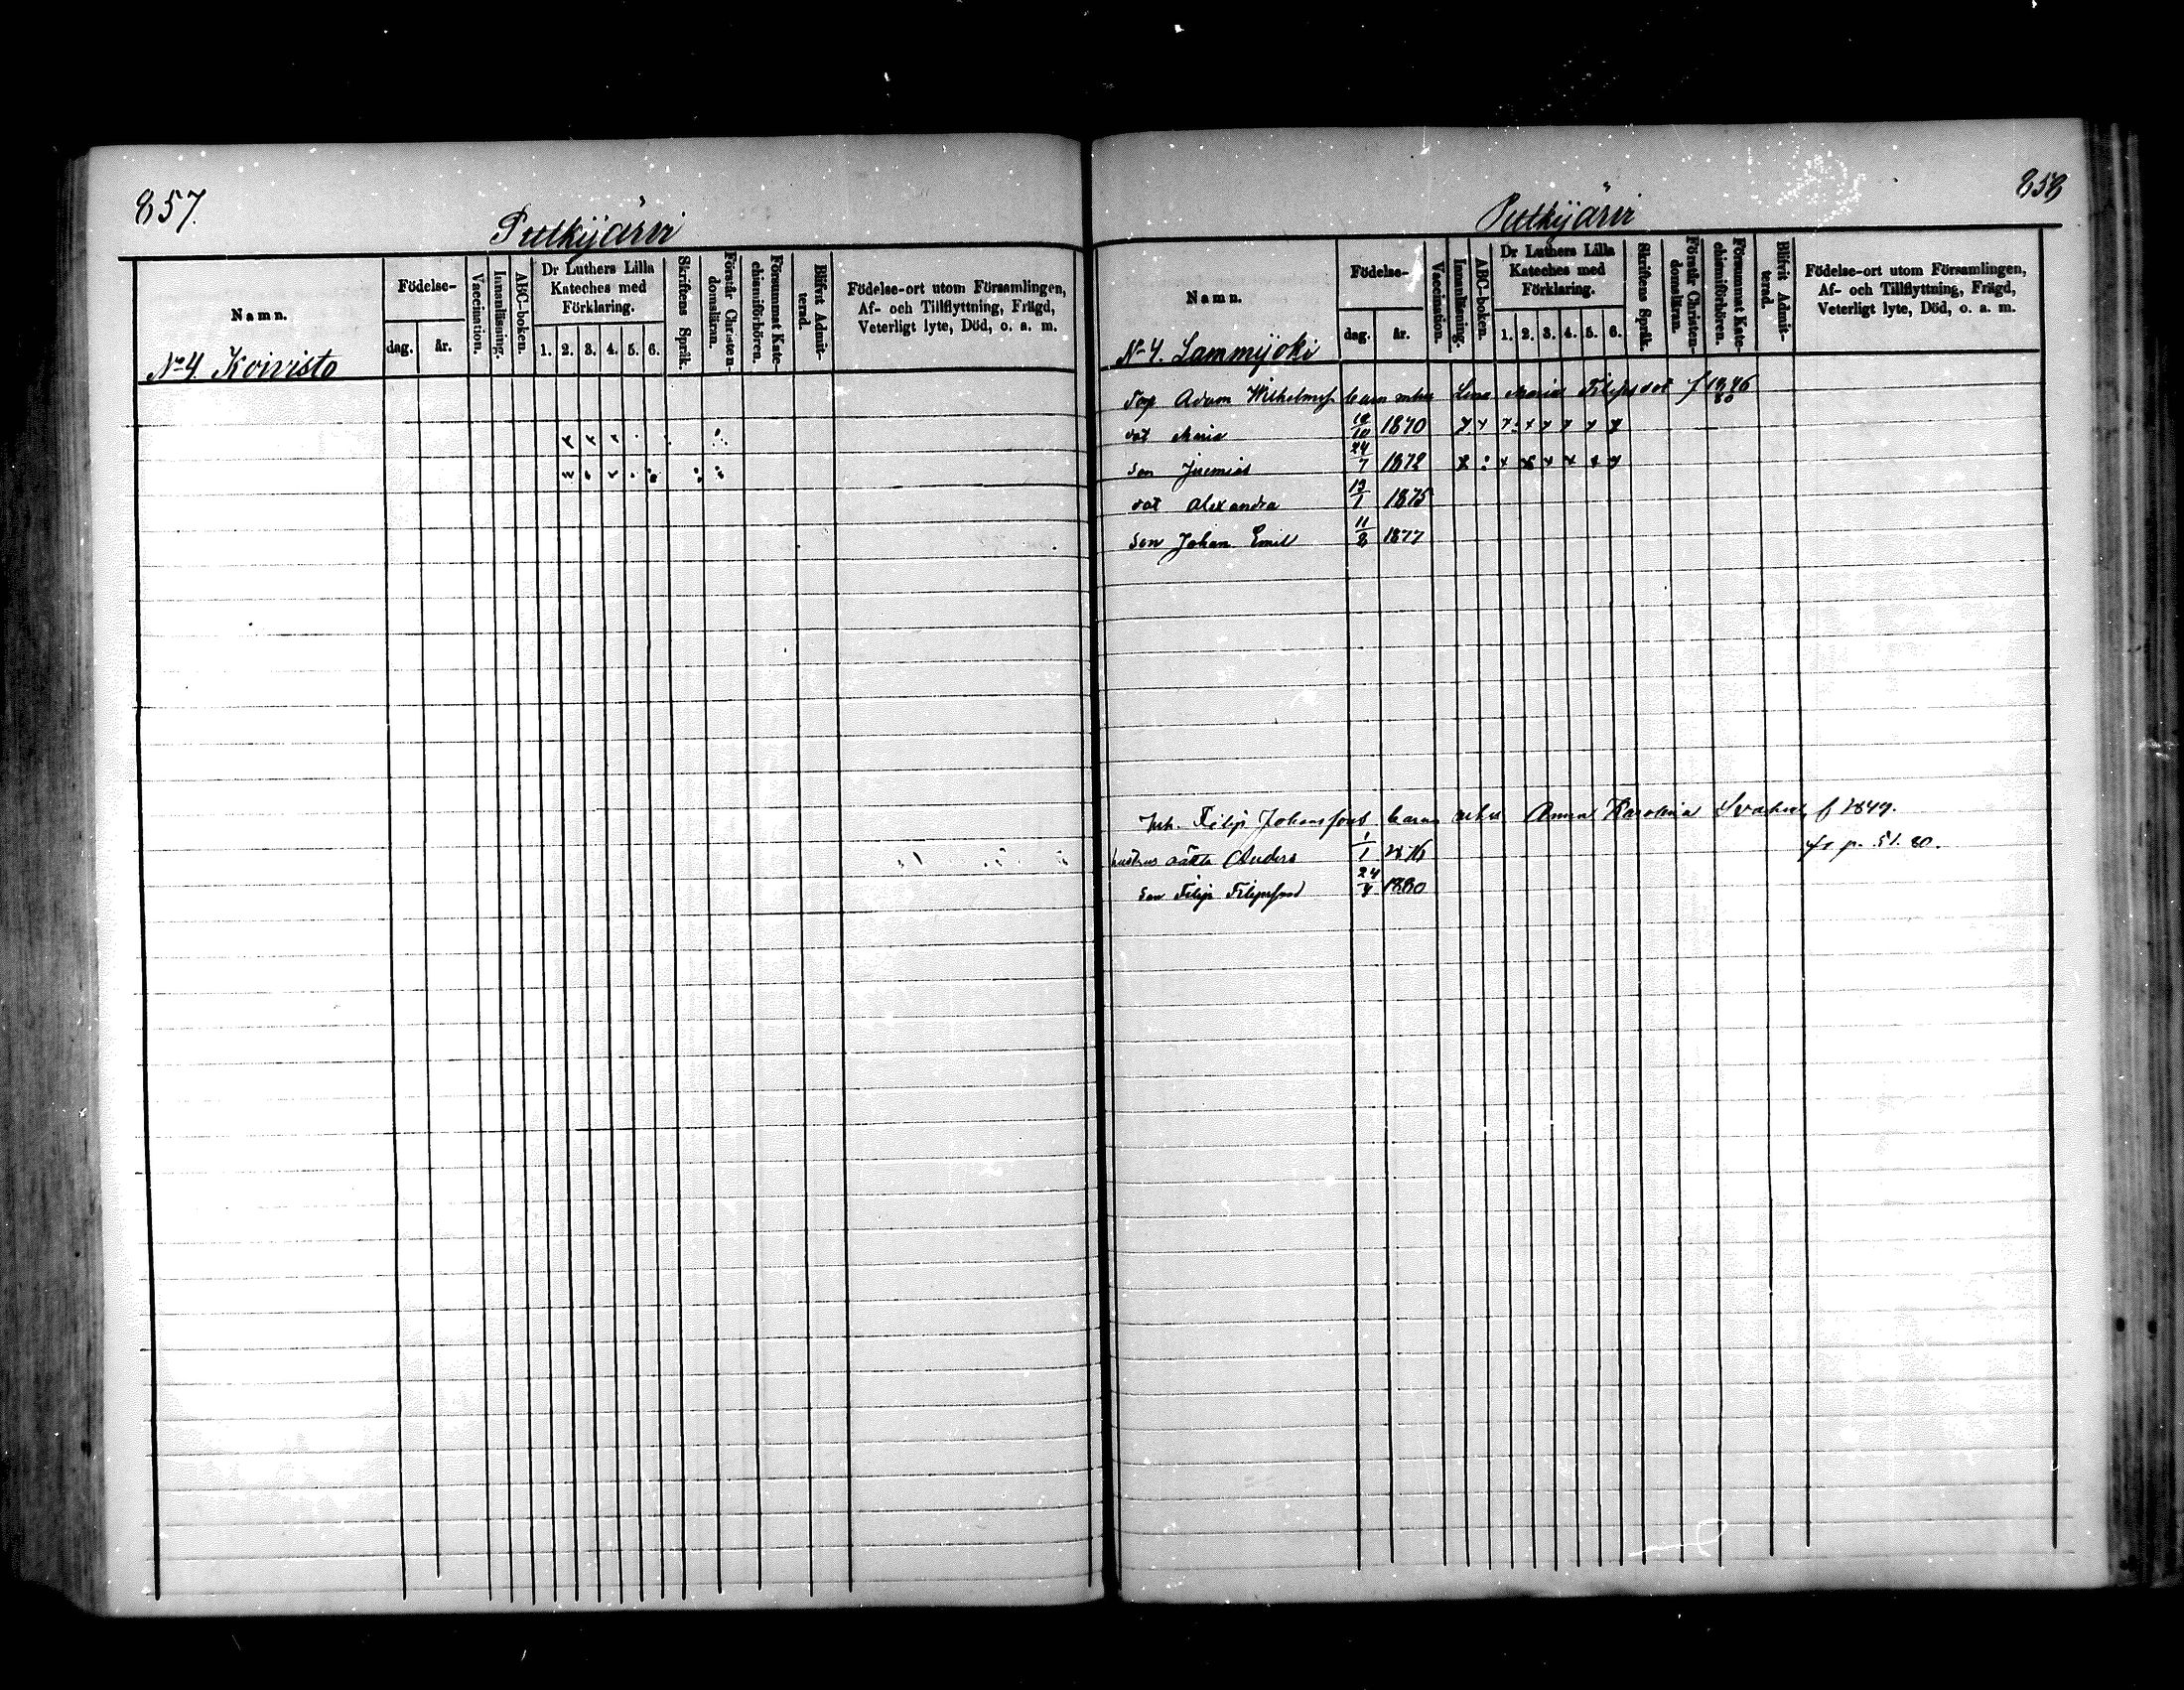 857.
Putkijärvi
Namn.
Födelse-
dag.
år.
Vaccination.
Innanläsning.
ABC-boken.
Dr Luthers Lilla
Kateches med
Förklaring.
1. 2. 3. 4. 5. 6.
Skriftens Språk.
Förstår Christen-
domsläran.
Försummat Kate-
chismiförhören.
Blifvit Admit-
terad.
Födelse-ort utom Församlingen,
Af- och Tillflyttning, Frägd,
Veterligt lyte, Död, o. a. m.
No 4. Koivisto
858
Putkijärvi
Namn.
Födelse-
dag.
år.
Vaccination.
Innanläsning.
ABC-boken.
Dr Luthers Lilla
Kateches med
Förklaring.
1. 2. 3. 4. 5. 6.
Skriftens Språk.
Förstår Christen-
domsläran.
Försummat Kate-
chismiförhören.
Blifvit Admit-
terad.
Födelse-ort utom Församlingen,
Af- och Tillflyttning, Frägd,
Veterligt lyte, Död, o. a. m.
No 4. Lammijoki
Adam Wilhelmss barn Lena Maria Filipsdot
dot Maria 10 1870
son Jeremias 24/7 1872
dot Alexandra 1875
son Johan Emil 11/8 1877
Filip Johanssons barn Anna Karolina f 1849.
hustrus oäkta Anders 1/1 1876 fr p. 51. 80.
son Filip Filipsson 24 1880